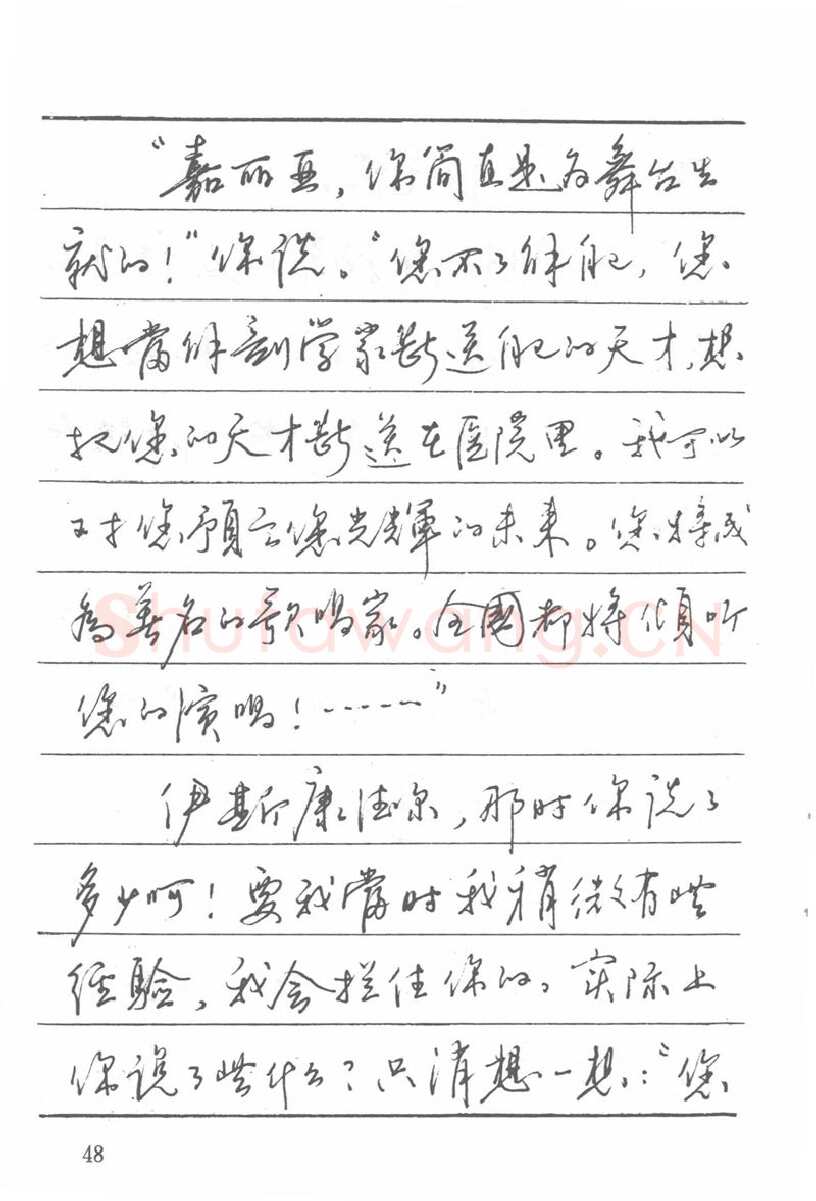 “嘉丽亚，你简直是为舞台生
就的！”你说。“您不了解自己，您
想当解剖学家断送自己的天才，想
把您的天才断送在医院里。我可以
对您预言您光辉的未来。您将成
为著名的歌唱家。全國都将倾听
您的演唱！……”
伊斯康德尔，那时你说了
多少呵！要我当时我稍微有些
经验，我会拦住你的，实际上
你说了些什么？只消想一想：“您
48
shufawang.CN